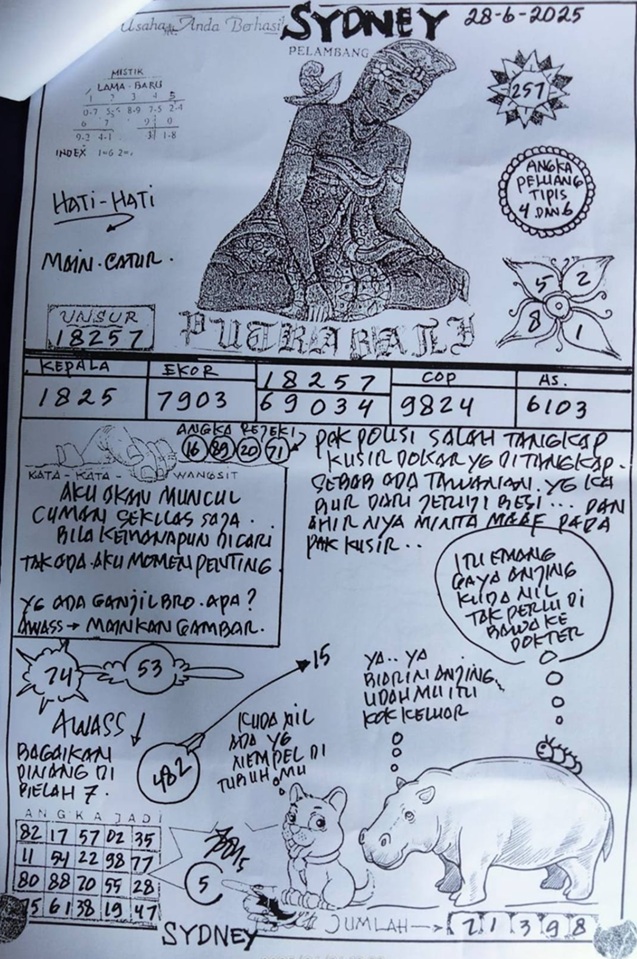 Usaha Anda Berhasil
SYDNEY
28-6-2025
PELAMBANG
MISTIK
LAMA - BARU
1 2 3 4 5
0-7 5-6 8-9 7-5 2-4
6 7 9 0
9-2 4-1 3 1-8
INDEX 1=6 2=
257
HATI-HATI
MAIN. CATUR.
ANGKA
PELUANG
TIPIS
4 DAN 6
5 2
8 1
UNSUR
18257
PUTRA BALI
KEPALA EKOR 18257 COP AS.
1825 7903 69034 9824 6103
ANGKA REJEKI
16 89 20 71
KATA - KATA - WANGSIT
AKU AKAN MUNCUL
CUMAN SEKILAS SAJA.
BILA KEMANAPUN DICARI
TAK ADA. AKU MOMEN PENTING.
YG ADA GANJIL BRO. APA?
AWASS → MAINKAN GAMBAR.
PAK POLISI SALAH TANGKAP
KUSIR DOKAR YG DITANGKAP.
SEBAB ADA TAWANAN. YG KA
BUR DARI JERUJI BESI... DAN
AHIRNYA MINTA MAAF PADA
PAK KUSIR..
ITU EMANG
GAYA ANJING
KUDA NIL
TAK PERLU DI
BAWA KE
DOKTER
74
53
15
AWASS
BAGAIKAN
PINANG DI
BELAH 7.
482
KUDA NIL
ADA YG
NEMPEL DI
TUBUHMU
YA.. YA
BIARIN ANJING
LIDAH MU ITU
KOK KELUAR
ANGKA JADI
82 17 57 02 35
11 54 22 98 77
80 88 20 55 28
75 61 38 19 47
5
SYDNEY
JUMLAH → 2 1 3 9 8